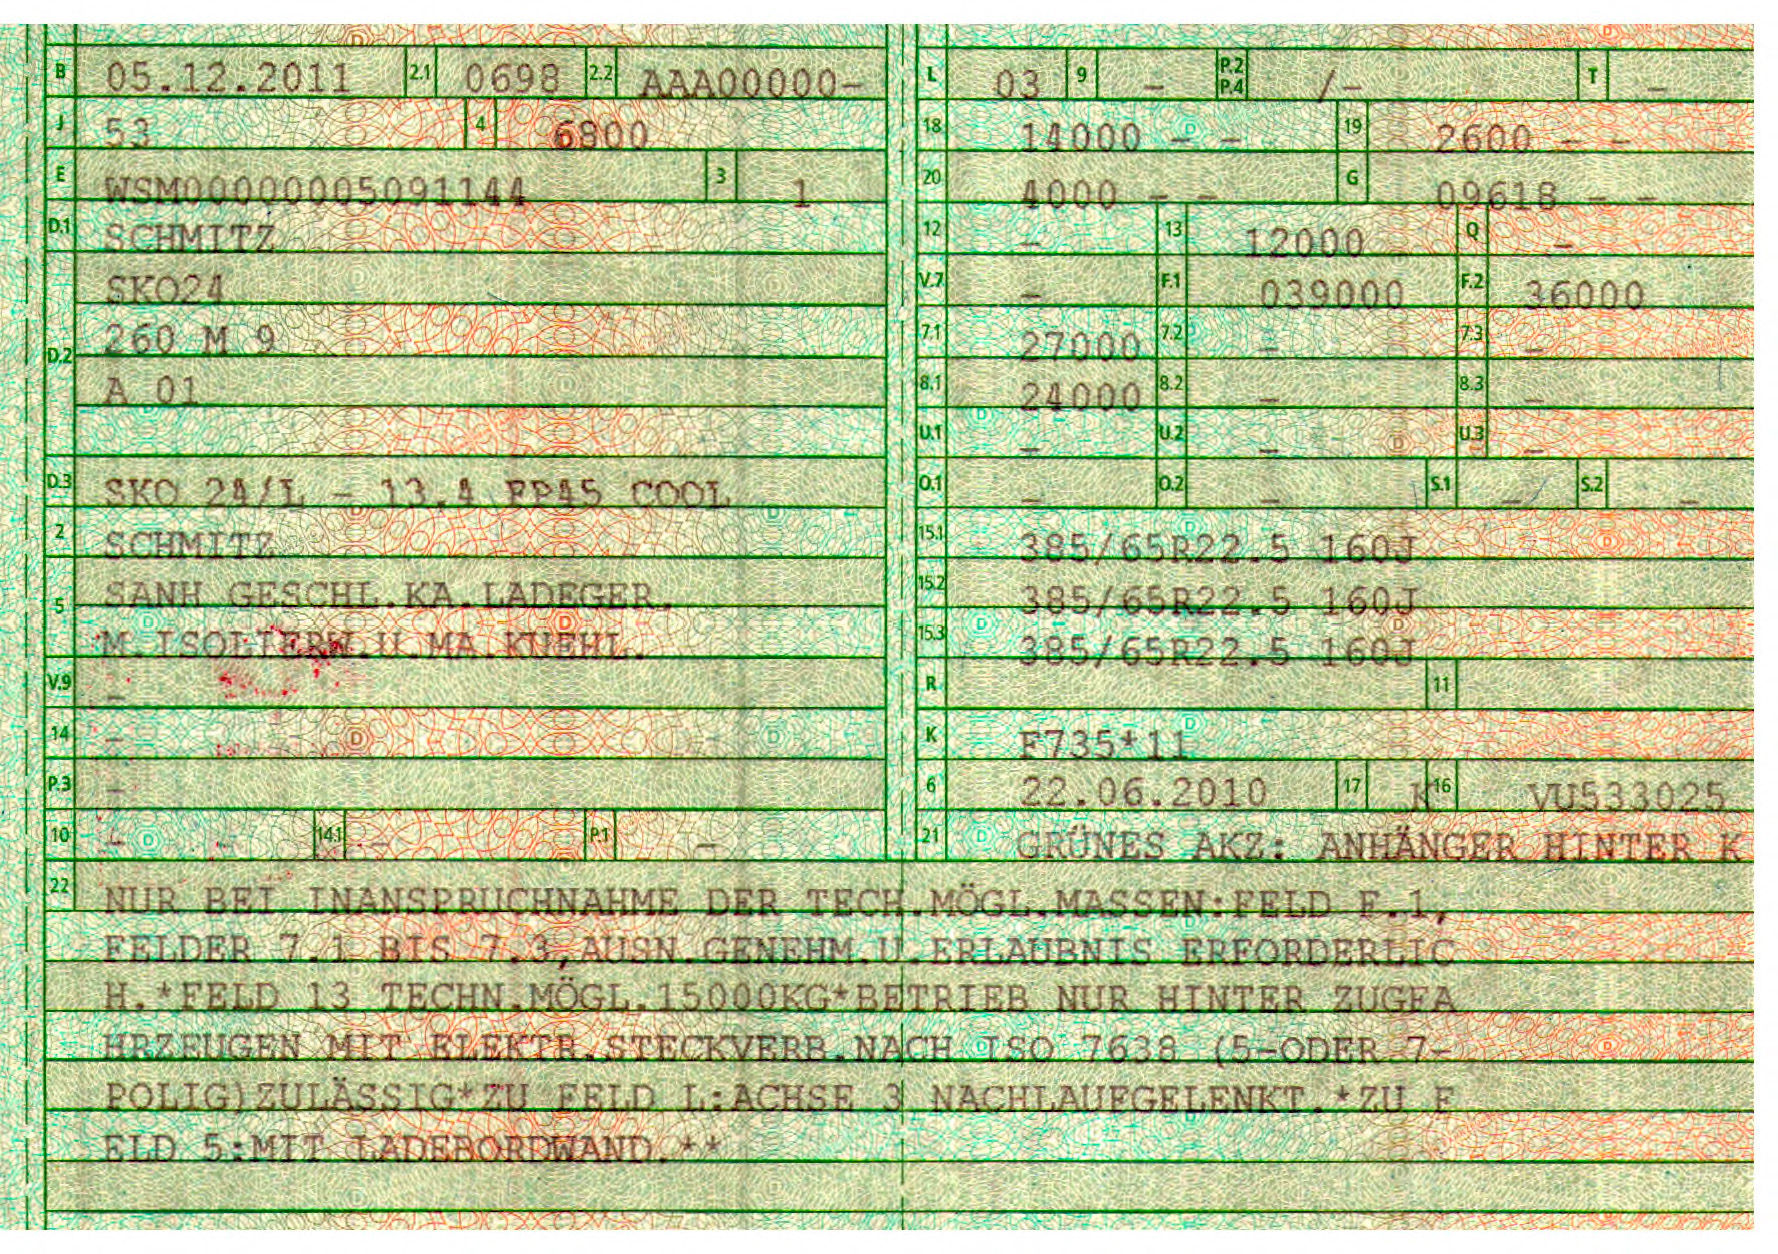 B 05.12.2011 2.1 0698 2.2 AAA00000-
J 53 4 6800
E WSM00000005091144 3 1
D.1 SCHMITZ
SKO24
D.2 260 M 9
A 01
D.3 SKO 24/L - 13.4 FP45 COOL
2 SCHMITZ
5 SANH GESCHL.KA.LADEGER.
M.ISOLIERW.U.MA.KUEHL.
V.9 -
14 -
P.3 -
10 - 14.1 - P.1 -
L 03 9 - P.2 P.4 /- T -
18 14000 - - 19 2600 - -
20 4000 - - G 09618 - -
12 - 13 12000 Q -
V.7 - F.1 039000 F.2 36000
7.1 27000 7.2 - 7.3 -
8.1 24000 8.2 - 8.3 -
U.1 - U.2 - U.3 -
O.1 - O.2 - S.1 - S.2 -
15.1 385/65R22.5 160J
15.2 385/65R22.5 160J
15.3 385/65R22.5 160J
R 11
K F735*11
6 22.06.2010 17 K 16 VU533025
21 GRÜNES AKZ: ANHÄNGER HINTER K
22 NUR BEI INANSPRUCHNAHME DER TECH.MÖGL.MASSEN:FELD F.1,
FELDER 7.1 BIS 7.3,AUSN.GENEHM.U.ERLAUBNIS ERFORDERLIC
H.*FELD 13 TECHN.MÖGL.15000KG*BETRIEB NUR HINTER ZUGFA
HRZEUGEN MIT ELEKTR.STECKVERB.NACH ISO 7638 (5-ODER 7-
POLIG)ZULÄSSIG*ZU FELD L:ACHSE 3 NACHLAUFGELENKT.*ZU F
ELD 5:MIT LADEBORDWAND.**